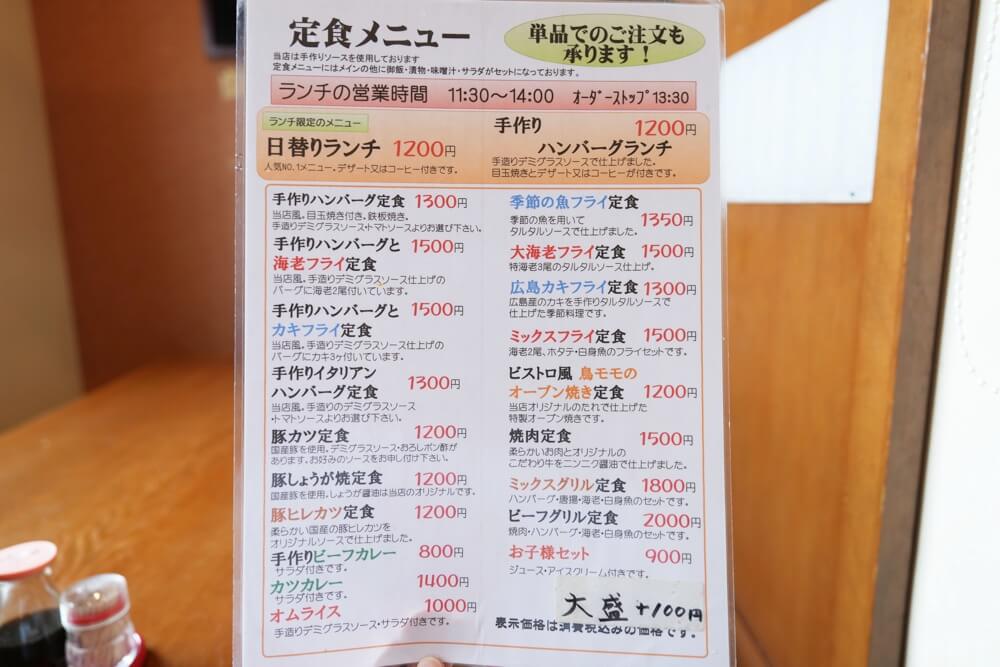 定食メニュー
単品でのご注文も
承ります!
当店は手作りソースを使用しております
定食メニューにはメインの他に御飯・漬物・味噌汁・サラダがセットになっております。
ランチの営業時間 11:30〜14:00 オーダーストップ13:30
ランチ限定のメニュー
日替りランチ 1200円
人気NO.1メニュー。デザート又はコーヒー付きです。
手作り 1200円
ハンバーグランチ
手造りデミグラスソースで仕上げました。
目玉焼きとデザート又はコーヒーが付きです。
手作りハンバーグ定食 1300円
当店風。目玉焼き付き。鉄板焼き。
手造りデミグラスソース・トマトソースよりお選び下さい。
手作りハンバーグと 1500円
海老フライ定食
当店風、手造りデミグラスソース仕上げの
バーグに海老2尾付いています。
手作りハンバーグと 1500円
カキフライ定食
当店風、手造りデミグラスソース仕上げの
バーグにカキ3ヶ付いています。
手作りイタリアン
ハンバーグ定食 1300円
当店風。手造りのデミグラスソース
・トマトソースよりお選び下さい。
豚カツ定食 1200円
国産豚を使用。デミグラスソース・おろしポン酢が
あります。お好みのソースをお申し付け下さい。
豚しょうが焼定食 1200円
国産豚を使用。しょうが醤油は当店のオリジナルです。
豚ヒレカツ定食 1200円
柔らかい国産の豚ヒレカツを
オリジナルソースで仕上げました。
手作りビーフカレー 800円
サラダ付きです。
カツカレー 1400円
サラダ付きです。
オムライス 1000円
手造りデミグラスソース・サラダ付きです。
季節の魚フライ定食
季節の魚を用いて 1350円
タルタルソースで仕上げました。
大海老フライ定食 1500円
特海老3尾のタルタルソース仕上げ。
広島カキフライ定食 1300円
広島産のカキを手作りタルタルソースで
仕上げた季節料理です。
ミックスフライ定食 1500円
海老2尾、ホタテ・白身魚のフライセットです。
ビストロ風 鳥モモの
オーブン焼き定食 1200円
当店オリジナルのたれで仕上げた
特製オーブン焼きです。
焼肉定食 1500円
柔らかいお肉とオリジナルの
こだわり牛をニンニク醤油で仕上げました。
ミックスグリル定食 1800円
ハンバーグ・唐揚・海老・白身魚のセットです。
ビーフグリル定食 2000円
焼肉・ハンバーグ・海老・白身魚のセットです。
お子様セット 900円
ジュース・アイスクリーム付きです。
大盛 +100円
表示価格は消費税込みの価格です。